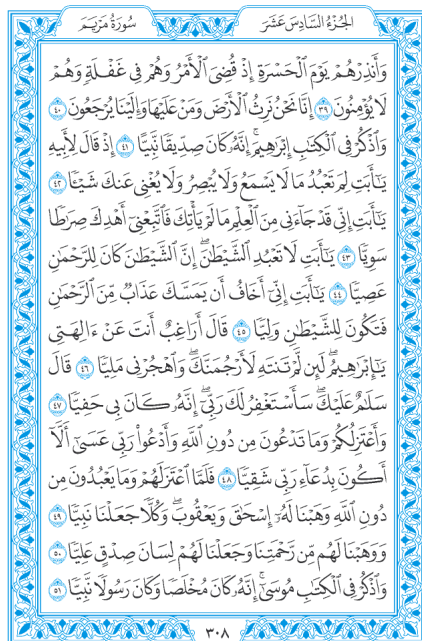 الجزء السادس عشر
سورة مريم
وَأَنذِرْهُمْ يَوْمَ ٱلْحَسْرَةِ إِذْ قُضِىَ ٱلْأَمْرُ وَهُمْ فِى غَفْلَةٍ وَهُمْ
لَا يُؤْمِنُونَ ٣٩ إِنَّا نَحْنُ نَرِثُ ٱلْأَرْضَ وَمَنْ عَلَيْهَا وَإِلَيْنَا يُرْجَعُونَ ٤٠
وَٱذْكُرْ فِى ٱلْكِتَٰبِ إِبْرَٰهِيمَ ۚ إِنَّهُۥ كَانَ صِدِّيقًا نَّبِيًّا ٤١ إِذْ قَالَ لِأَبِيهِ
يَٰٓأَبَتِ لِمَ تَعْبُدُ مَا لَا يَسْمَعُ وَلَا يُبْصِرُ وَلَا يُغْنِى عَنكَ شَيْـًٔا ٤٢
يَٰٓأَبَتِ إِنِّى قَدْ جَآءَنِى مِنَ ٱلْعِلْمِ مَا لَمْ يَأْتِكَ فَٱتَّبِعْنِىٓ أَهْدِكَ صِرَٰطًا
سَوِيًّا ٤٣ يَٰٓأَبَتِ لَا تَعْبُدِ ٱلشَّيْطَٰنَ ۖ إِنَّ ٱلشَّيْطَٰنَ كَانَ لِلرَّحْمَٰنِ
عَصِيًّا ٤٤ يَٰٓأَبَتِ إِنِّىٓ أَخَافُ أَن يَمَسَّكَ عَذَابٌ مِّنَ ٱلرَّحْمَٰنِ
فَتَكُونَ لِلشَّيْطَٰنِ وَلِيًّا ٤٥ قَالَ أَرَاغِبٌ أَنتَ عَنْ ءَالِهَتِى
يَٰٓإِبْرَٰهِيمُ ۖ لَئِن لَّمْ تَنتَهِ لَأَرْجُمَنَّكَ ۖ وَٱهْجُرْنِى مَلِيًّا ٤٦ قَالَ
سَلَٰمٌ عَلَيْكَ ۖ سَأَسْتَغْفِرُ لَكَ رَبِّىٓ ۖ إِنَّهُۥ كَانَ بِى حَفِيًّا ٤٧
وَأَعْتَزِلُكُمْ وَمَا تَدْعُونَ مِن دُونِ ٱللَّهِ وَأَدْعُوا۟ رَبِّى عَسَىٰٓ أَلَّآ
أَكُونَ بِدُعَآءِ رَبِّى شَقِيًّا ٤٨ فَلَمَّا ٱعْتَزَلَهُمْ وَمَا يَعْبُدُونَ مِن
دُونِ ٱللَّهِ وَهَبْنَا لَهُۥٓ إِسْحَٰقَ وَيَعْقُوبَ ۖ وَكُلًّا جَعَلْنَا نَبِيًّا ٤٩
وَوَهَبْنَا لَهُم مِّن رَّحْمَتِنَا وَجَعَلْنَا لَهُمْ لِسَانَ صِدْقٍ عَلِيًّا ٥٠
وَٱذْكُرْ فِى ٱلْكِتَٰبِ مُوسَىٰٓ ۚ إِنَّهُۥ كَانَ مُخْلَصًا وَكَانَ رَسُولًا نَّبِيًّا ٥١
٣٠٨